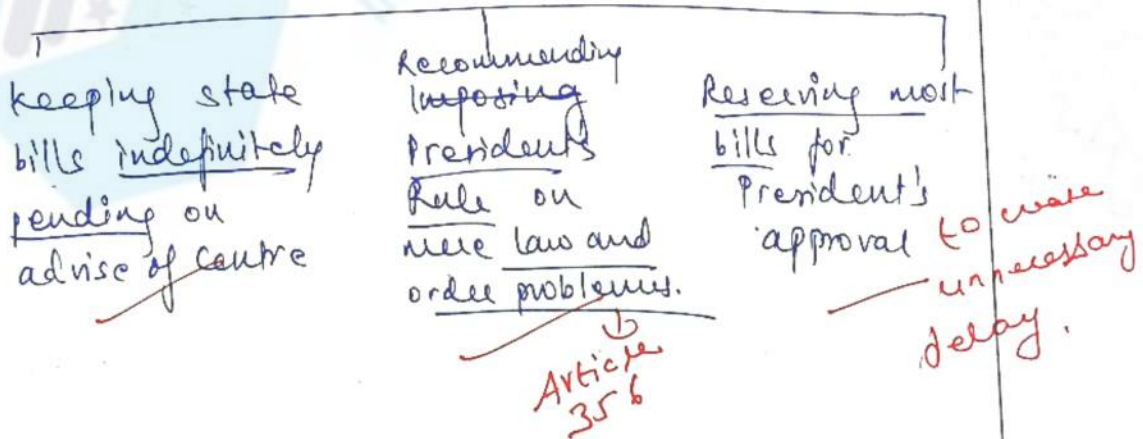 keeping state
bills indefinitely
pending on
advise of centre
Recommending
Imposing
President's
Rule on
mere law and
order problems.
Article
356
Reserving most
bills for
President's
approval
to create
unnecessary
delay.